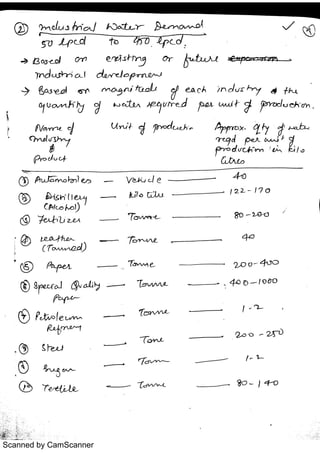 ② Industrial Water Demand
50 lpcd to 450 lpcd.
→ Based on existing or future
Industrial development
→ Based on magnitude of each industry & the
quantity of water required per unit of production.
Name of Industry & Product
Unit of product
Approx. qty of water reqd per unit of production in kilo litres
① Automobiles — Vehicle — 40
② Distillery (Alcohol) — kilo litre — 122 - 170
③ Fertilizer — Tonne — 80 - 200
④ Leather (Tanned) — Tonne — 40
⑤ Paper — Tonne — 200 - 400
⑥ Special Quality Paper — Tonne — 400 - 1000
⑦ Petroleum Refinery — Tonne — 1 - 2
⑧ Steel — Tone — 200 - 250
⑨ Sugar — Tonne — 1 - 2
⑩ Textile — Tonne — 80 - 140
Scanned by CamScanner